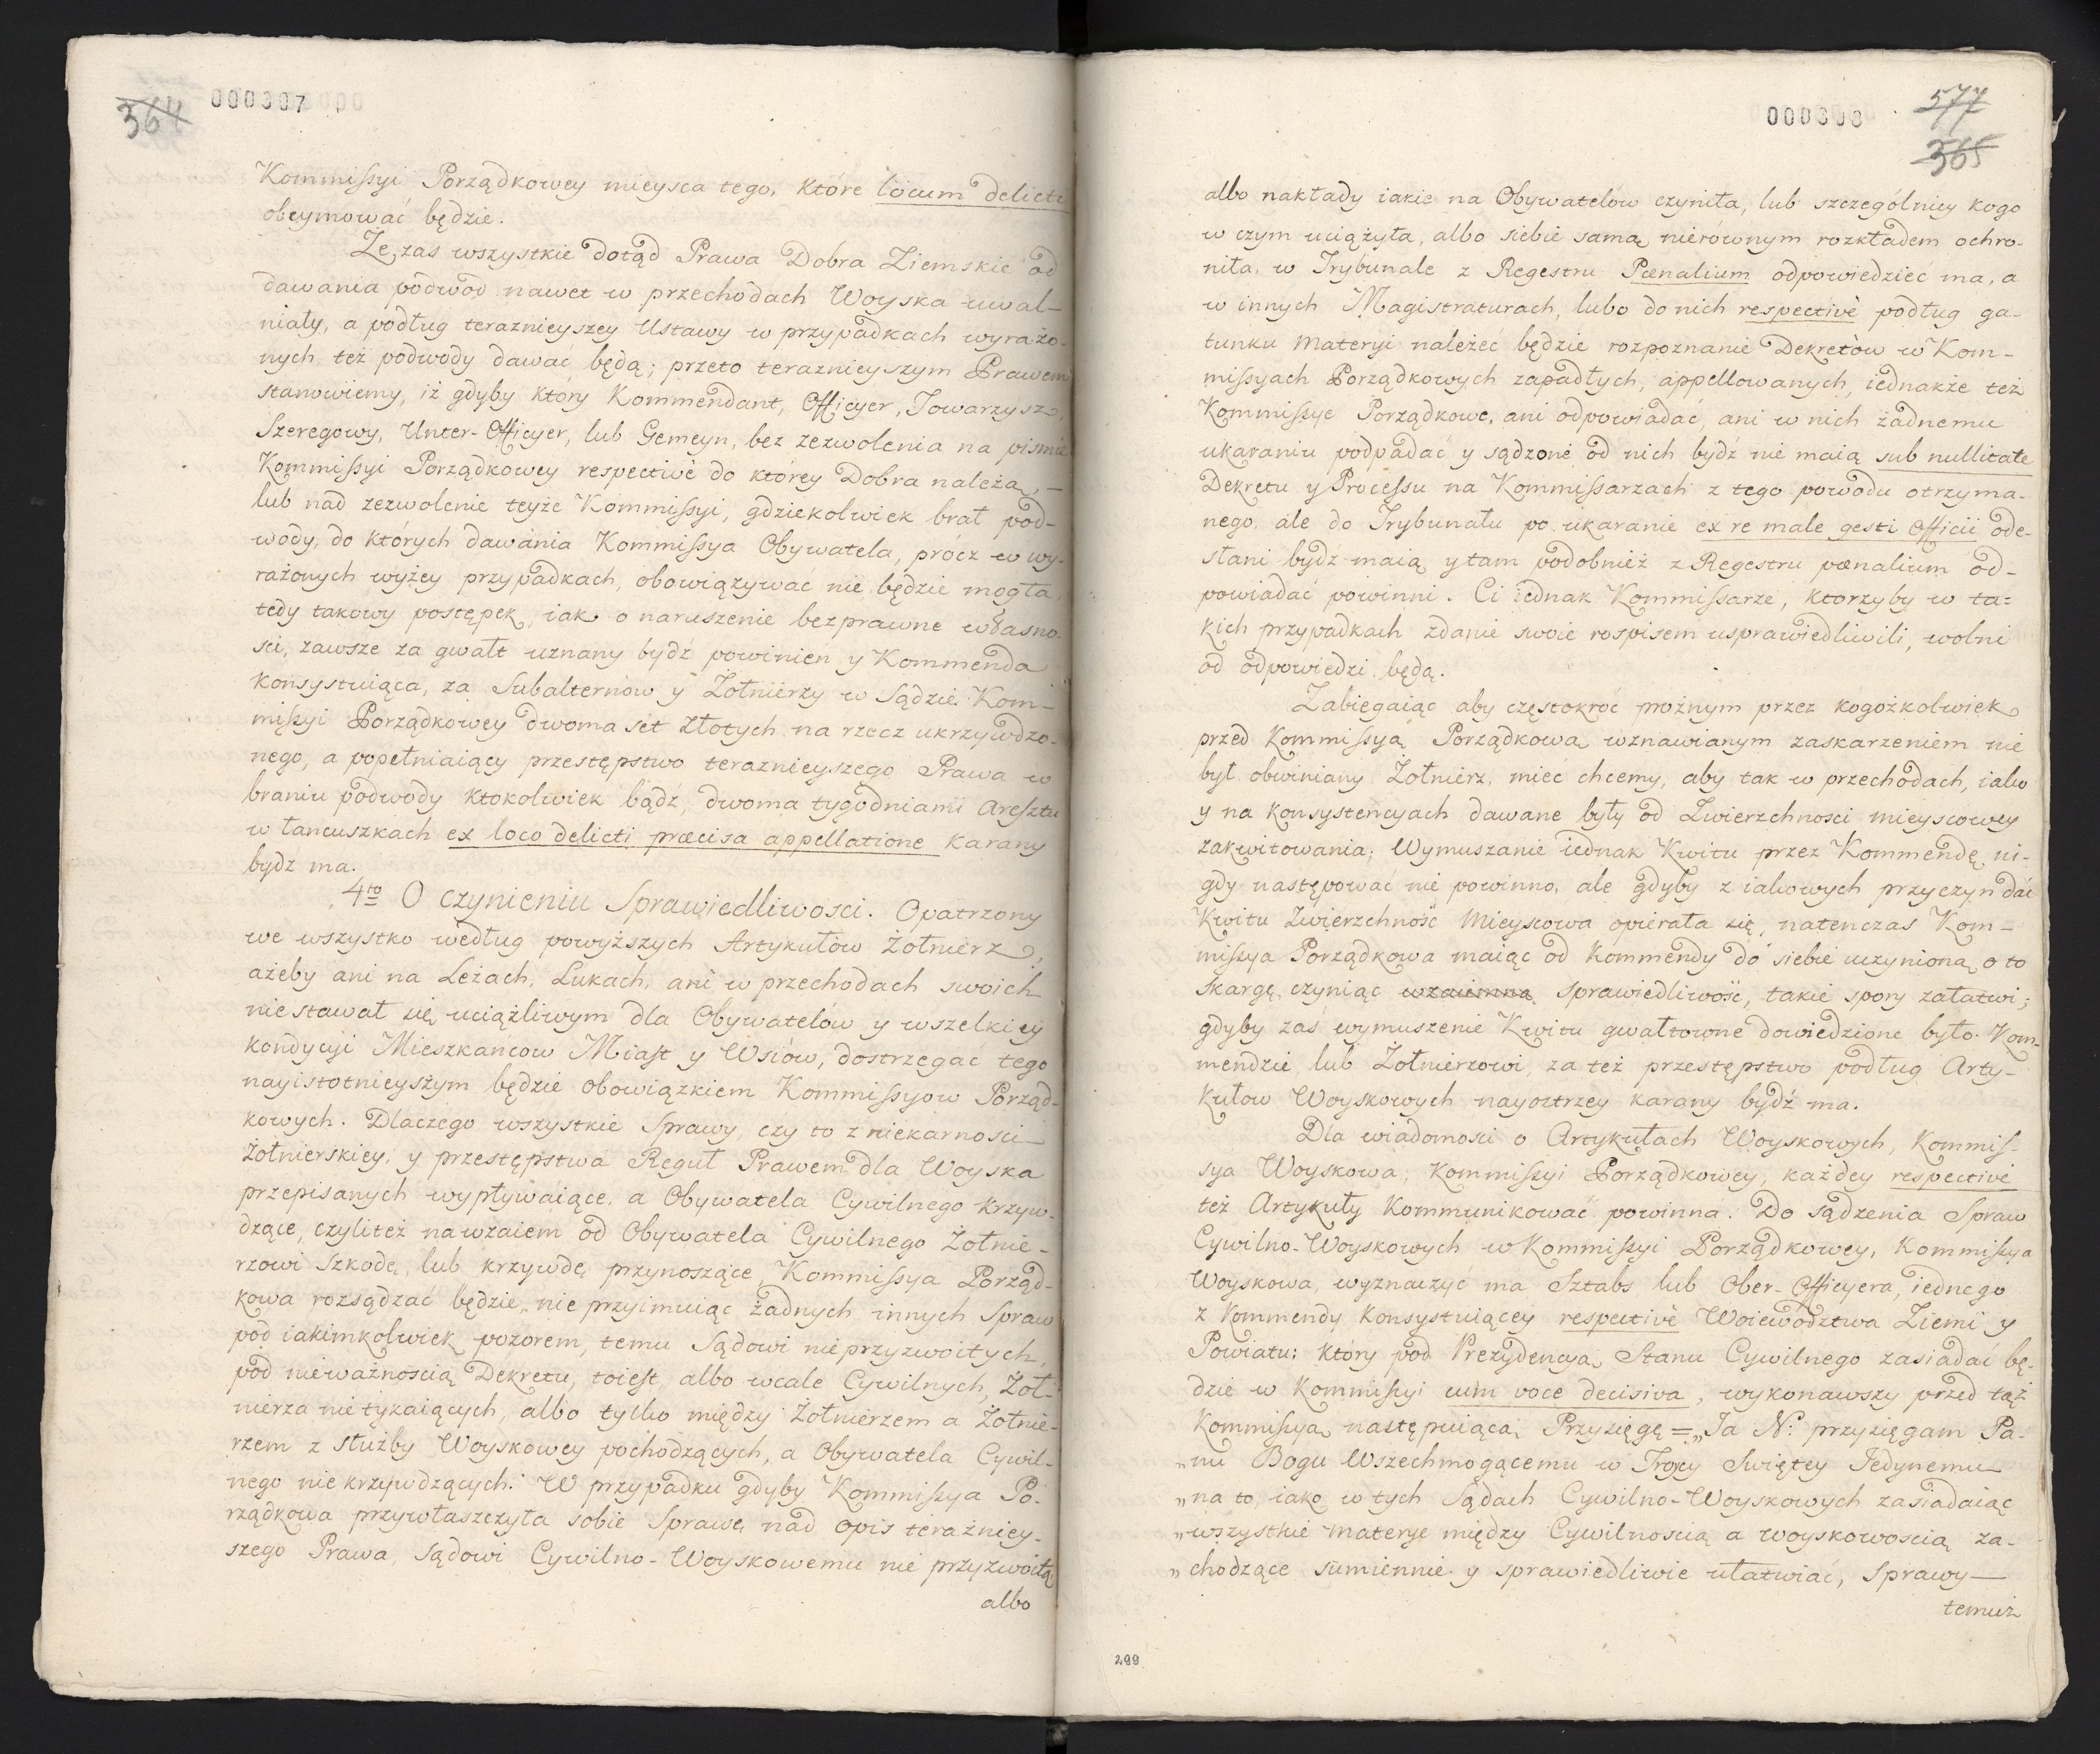 364
000307
Kommissyi Porządkowey mieysca tego, które locum delicti
obeymować będzie.
Że zas wszystkie dotąd Prawa Dobra Ziemskie od
dawania podwod nawet w przechodach Woyska uwal-
niały, a podług teraznieyszey Ustawy w przypadkach wyrażo-
nych też podwody dawać będą; przeto teraznieyszym Prawem
stanowiemy, iż gdyby który Kommendant, Officyer, Towarzysz,
Szeregowy, Unter-Officyer, lub Gemeyn, bez zezwolenia na pismie
Kommissyi Porządkowey respectivè do którey Dobra należą, —
lub nad zezwolenie teyże Kommissyi, gdziekolwiek brał pod-
wody, do których dawania Kommissya Obywatela, prócz w wy-
rażonych wyżey przypadkach, obowiązywać nie będzie mogła,
tedy takowy postępek, iako o naruszenie bezprawne własno-
sci, zawsze za gwałt uznany bydź powinien y Kommenda
konsystuiąca, za Subalternow y Żołnierzy w Sądzie Kom-
missyi Porządkowey dwoma set złotych na rzecz ukrzywdzo-
nego, a popełniaiący przestępstwo teraznieyszego Prawa w
braniu podwody ktokolwiek bądź, dwoma tygodniami Aresztu
w łancuszkach ex loco delicti præcisa appellatione karany
bydz ma.
4to O czynieniu Sprawiedliwosci. Opatrzony
we wszystko według powyższych Artykułów Żołnierz,
ażeby ani na Leżach, Lukach, ani w przechodach swoich
nie stawał się uciążliwym dla Obywatelów y wszelkiey
kondycyi Mieszkańcow Miast y Wsiów, dostrzegać tego
nayistotnieyszym będzie obowiązkiem Kommissyow Porząd-
kowych. Dlaczego wszystkie Sprawy, czy to z niekarnosci
Żołnierskiey, y przestępstwa Reguł Prawem dla Woyska
przepisanych wypływaiące, a Obywatela Cywilnego krzyw-
dzące, czyliteż nawzaiem od Obywatela Cywilnego Żołnie-
rzowi Szkodę, lub krzywdę przynoszące, Kommissya Porząd-
kowa rozsądzać będzie, nie przyimuiąc żadnych innych Spraw
pod iakimkolwiek pozorem, temu Sądowi nieprzyzwoitych,
pod nieważnoscią Dekretu, toiest, albo wcale Cywilnych, Żoł-
nierza nie tykaiących, albo tylko między Żołnierzem a Żołnie-
rzem z służby Woyskowey pochodzących, a Obywatela Cywil-
nego nie krzywdzących. W przypadku gdyby Kommissya Po-
rządkowa przywłaszczyła sobie Sprawę nad opis teraźniey-
szego Prawa, Sądowi Cywilno-Woyskowemu nie przyzwoitą
albo
000308
577
365
albo nakłady iakie na Obywatelów czyniła, lub szczególniey kogo
w czym uciążyła, albo siebie samą nierownym rozkładem ochro-
niła, w Trybunale z Regestru Pœnalium odpowiedzieć ma, a
w innych Magistraturach, lubo do nich respectivè podług ga-
tunku materyi należeć będzie rozpoznanie Dekretów w Kom-
missyach Porządkowych zapadłych, appellowanych, iednakże też
Kommissye Porządkowe, ani odpowiadać, ani w nich żadnemu
ukaraniu podpadać y sądzone od nich bydź nie maią sub nullitate
Dekretu y Processu na Kommissarzach z tego powodu otrzyma-
nego, ale do Trybunału po ukaranie ex re male gesti Officii ode-
słani bydź maią y tam podobnież z Regestru pœnalium od-
powiadać powinni. Ci iednak Kommissarze, ktorzyby w ta-
kich przypadkach zdanie swoie rospisem usprawiedliwili, wolni
od odpowiedzi będą.
Zabiegaiąc aby częstokroć prożnym przez kogożkolwiek
przed Kommissyą Porządkową wznawianym zaskarzeniem nie
był obwiniany Żołnierz, mieć chcemy, aby tak w przechodach, iako
y na konsystencyach dawane były od Zwierzchnosci mieyscowey
zakwitowania; Wymuszanie iednak Kwitu przez Kommendę ni-
gdy następować nie powinno, ale gdyby z iakowych przyczyn dać
Kwitu Zwierzchność Mieyscowa opierała się, natenczas Kom-
missya Porządkowa maiąc od Kommendy do siebie uczynioną o to
Skargę, czyniąc wzaiemną sprawiedliwość, takie spory załatwi;
gdyby zaś wymuszenie Kwitu gwałtowne dowiedzione było Kom-
mendzie lub Żołnierzowi, za też przestępstwo podług Arty-
kułow Woyskowych nayostrzey karany bydź ma.
Dla wiadomosci o Artykułach Woyskowych, Kommis-
sya Woyskowa, Kommissyi Porządkowey, każdey respectivè
też Artykuły kommunikować powinna. Do sądzenia Spraw
Cywilno-Woyskowych w Kommissyi Porządkowey, Kommissya
Woyskowa, wyznaczyć ma Sztabs lub Ober-Officyera, iednego
z kommendy konsystuiącey respectivè Woiewodztwa Ziemi y
Powiatu; który pod Prezydencyą Stanu Cywilnego zasiadać bę-
dzie w Kommissyi cum voce decisiva, wykonawszy przed tąż
Kommissyą następuiącą Przysięgę = „Ja N: przysięgam Pa-
„nu Bogu Wszechmogącemu w Troycy Swiętey Jedynemu
„na to, iako w tych Sądach Cywilno-Woyskowych zasiadaiąc
„wszystkie materye między Cywilnoscią a woyskowoscią za-
„chodzące sumiennie y sprawiedliwie ułatwiać, Sprawy —
temuż
299